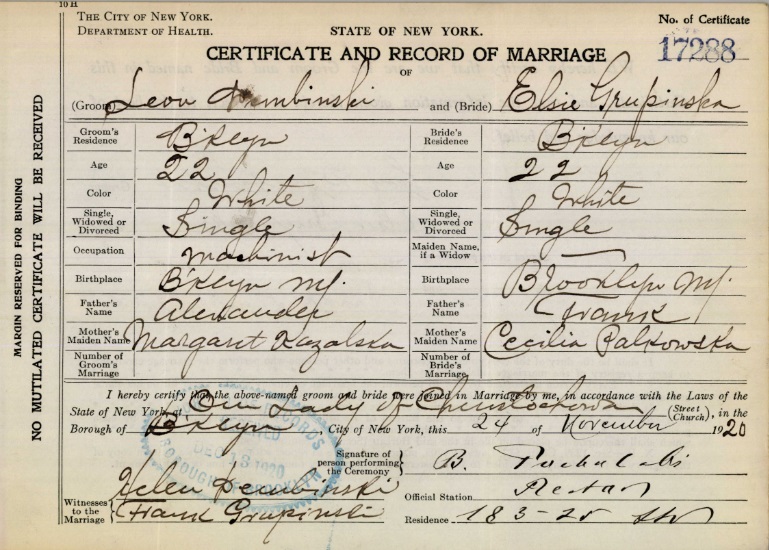 10 H
THE CITY OF NEW YORK.
DEPARTMENT OF HEALTH.
STATE OF NEW YORK.
No. of Certificate
17288
CERTIFICATE AND RECORD OF MARRIAGE
OF
(Groom) Leon Dembinski and (Bride) Elsie Grupinska
Groom's Residence B'klyn Bride's Residence B'klyn
Age 22 Age 22
Color White Color White
Single, Widowed or Divorced Single Single, Widowed or Divorced Single
Occupation Machinist Maiden Name, if a Widow —
Birthplace B'klyn NY. Birthplace Brooklyn NY.
Father's Name Alexander Father's Name Frank
Mother's Maiden Name Margaret Kazalska Mother's Maiden Name Cecilia Palkowska
Number of Groom's Marriage Number of Bride's Marriage
I hereby certify that the above-named groom and bride were joined in Marriage by me, in accordance with the Laws of the
State of New York, at Our Lady of (Street Church), in the
Borough of B'klyn, City of New York, this 24 of November 1920
Signature of person performing the Ceremony B.
Witnesses to the Marriage Helen Dembinski
Frank Grupinski
Official Station Rector
Residence 183-25
DEC 13 1920
BOROUGH OF BROOKLYN
MARGIN RESERVED FOR BINDING
NO MUTILATED CERTIFICATE WILL BE RECEIVED